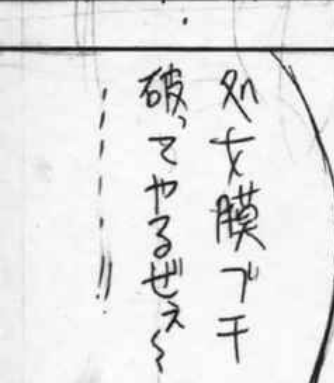 処女膜ブチ
破ってやるぜぇ〜
----!!